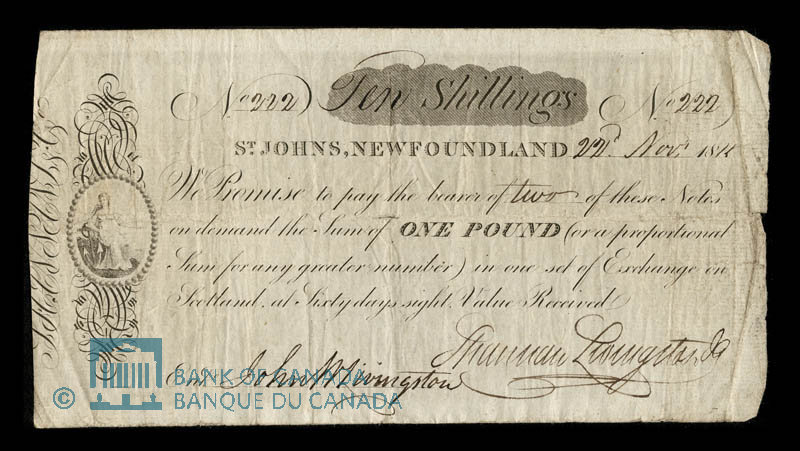 No 222) Ten Shillings No 222)
ST. JOHNS, NEWFOUNDLAND 22d. Novr. 181
We Promise to pay the bearer of two of these Notes
on demand the Sum of ONE POUND (or a proportional
Sum for any greater number) in one set of Exchange on
Scotland, at Sixty days sight, Value Received
Livingston
Ent John Livingston
© BANK OF CANADA
BANQUE DU CANADA